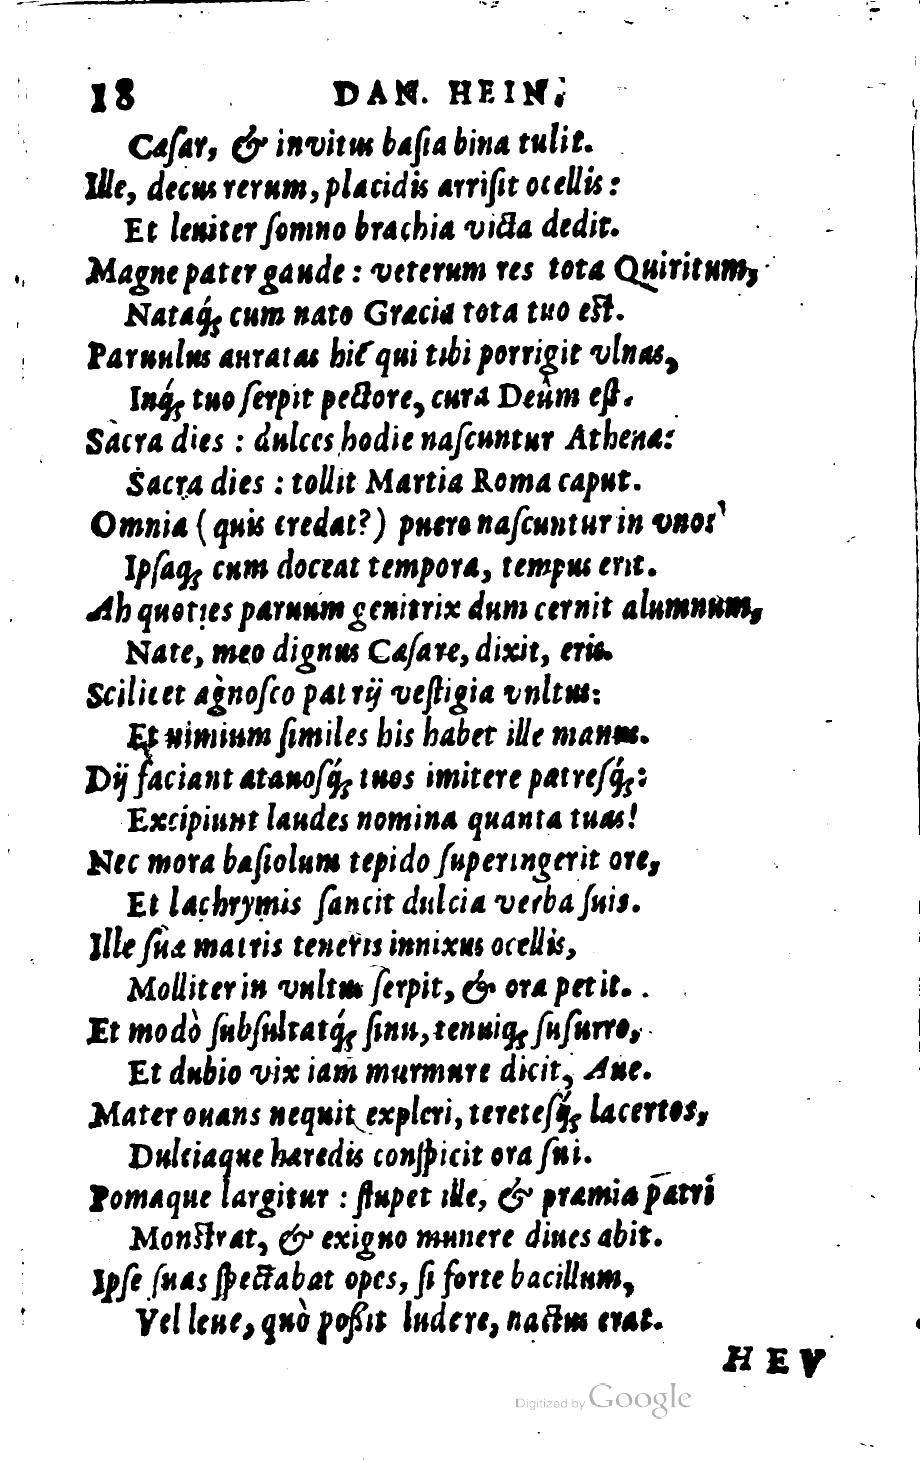 18 DAN. HEIN.
Cæſar, & invitus baſia bina tulit.
Ille, decus rerum, placidis arriſit ocellis:
Et leniter ſomno brachia victa dedit.
Magne pater gaude: veterum res tota Quiritum,
Nataq́; cum nato Græcia tota tuo eſt.
Paruulus auratas hic qui tibi porrigit vlnas,
Inq́; tuo ſerpit pectore, cura Deûm eſt.
Sacra dies: dulces hodie naſcuntur Athenæ:
Sacra dies: tollit Martia Roma caput.
Omnia (quis credat?) puero naſcuntur in vno:
Ipſaq; cum doceat tempora, tempus erit.
Ah quoties paruum genitrix dum cernit alumnum,
Nate, meo dignus Cæſare, dixit, eris.
Scilicet agnoſco patrij veſtigia vultus:
Et nimium ſimiles his habet ille manus.
Dij faciant atauoſq́; tuos imitere patreſq́;:
Excipiunt laudes nomina quanta tuas!
Nec mora baſiolum tepido ſuperingerit ore,
Et lachrymis ſancit dulcia verba ſuis.
Ille ſuæ matris teneris innixus ocellis,
Molliter in vultus ſerpit, & ora petit.
Et modò ſubſultatq́; ſinu, tenuiq; ſuſurro,
Et dubio vix iam murmure dicit, Aue.
Mater ouans nequit expleri, tereteſq́; lacertos,
Dulciaque hæredis conſpicit ora ſui.
Pomaque largitur: ſtupet ille, & præmia patri
Monſtrat, & exiguo munere diues abit.
Ipſe ſuas ſpectabat opes, ſi forte bacillum,
Vel leue, quò poſſit ludere, nactus erat.
HEV
Digitized by Google